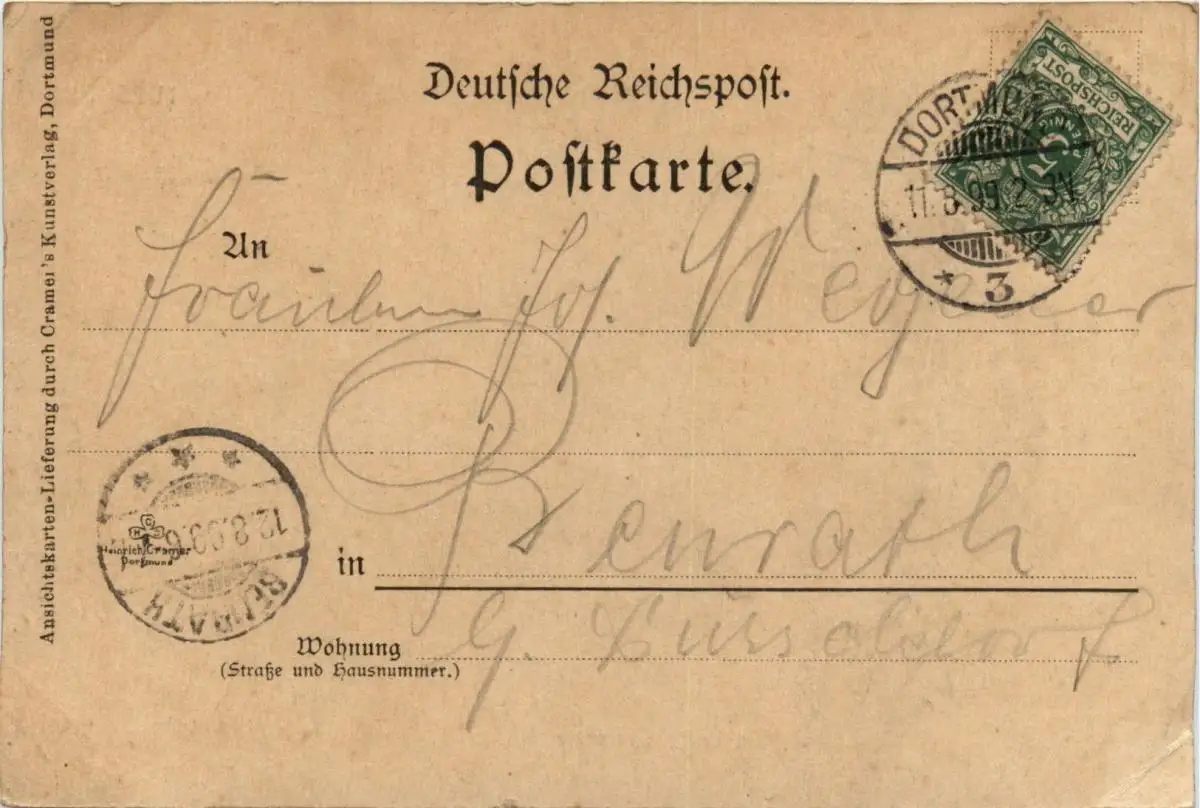 Deutsche Reichspost.
Postkarte.
REICHSPOST
5
DORTMUND
11.8.99. 2-3N.
* 3
An
Fräulein Jos. Wegener
in Benrath
Wohnung
(Straße und Hausnummer.)
b. Düsseldorf
12.8.99.6
BENRATH
H C
Heinrich Cramer
Dortmund
Ansichtskarten-Lieferung durch Cramer's Kunstverlag, Dortmund